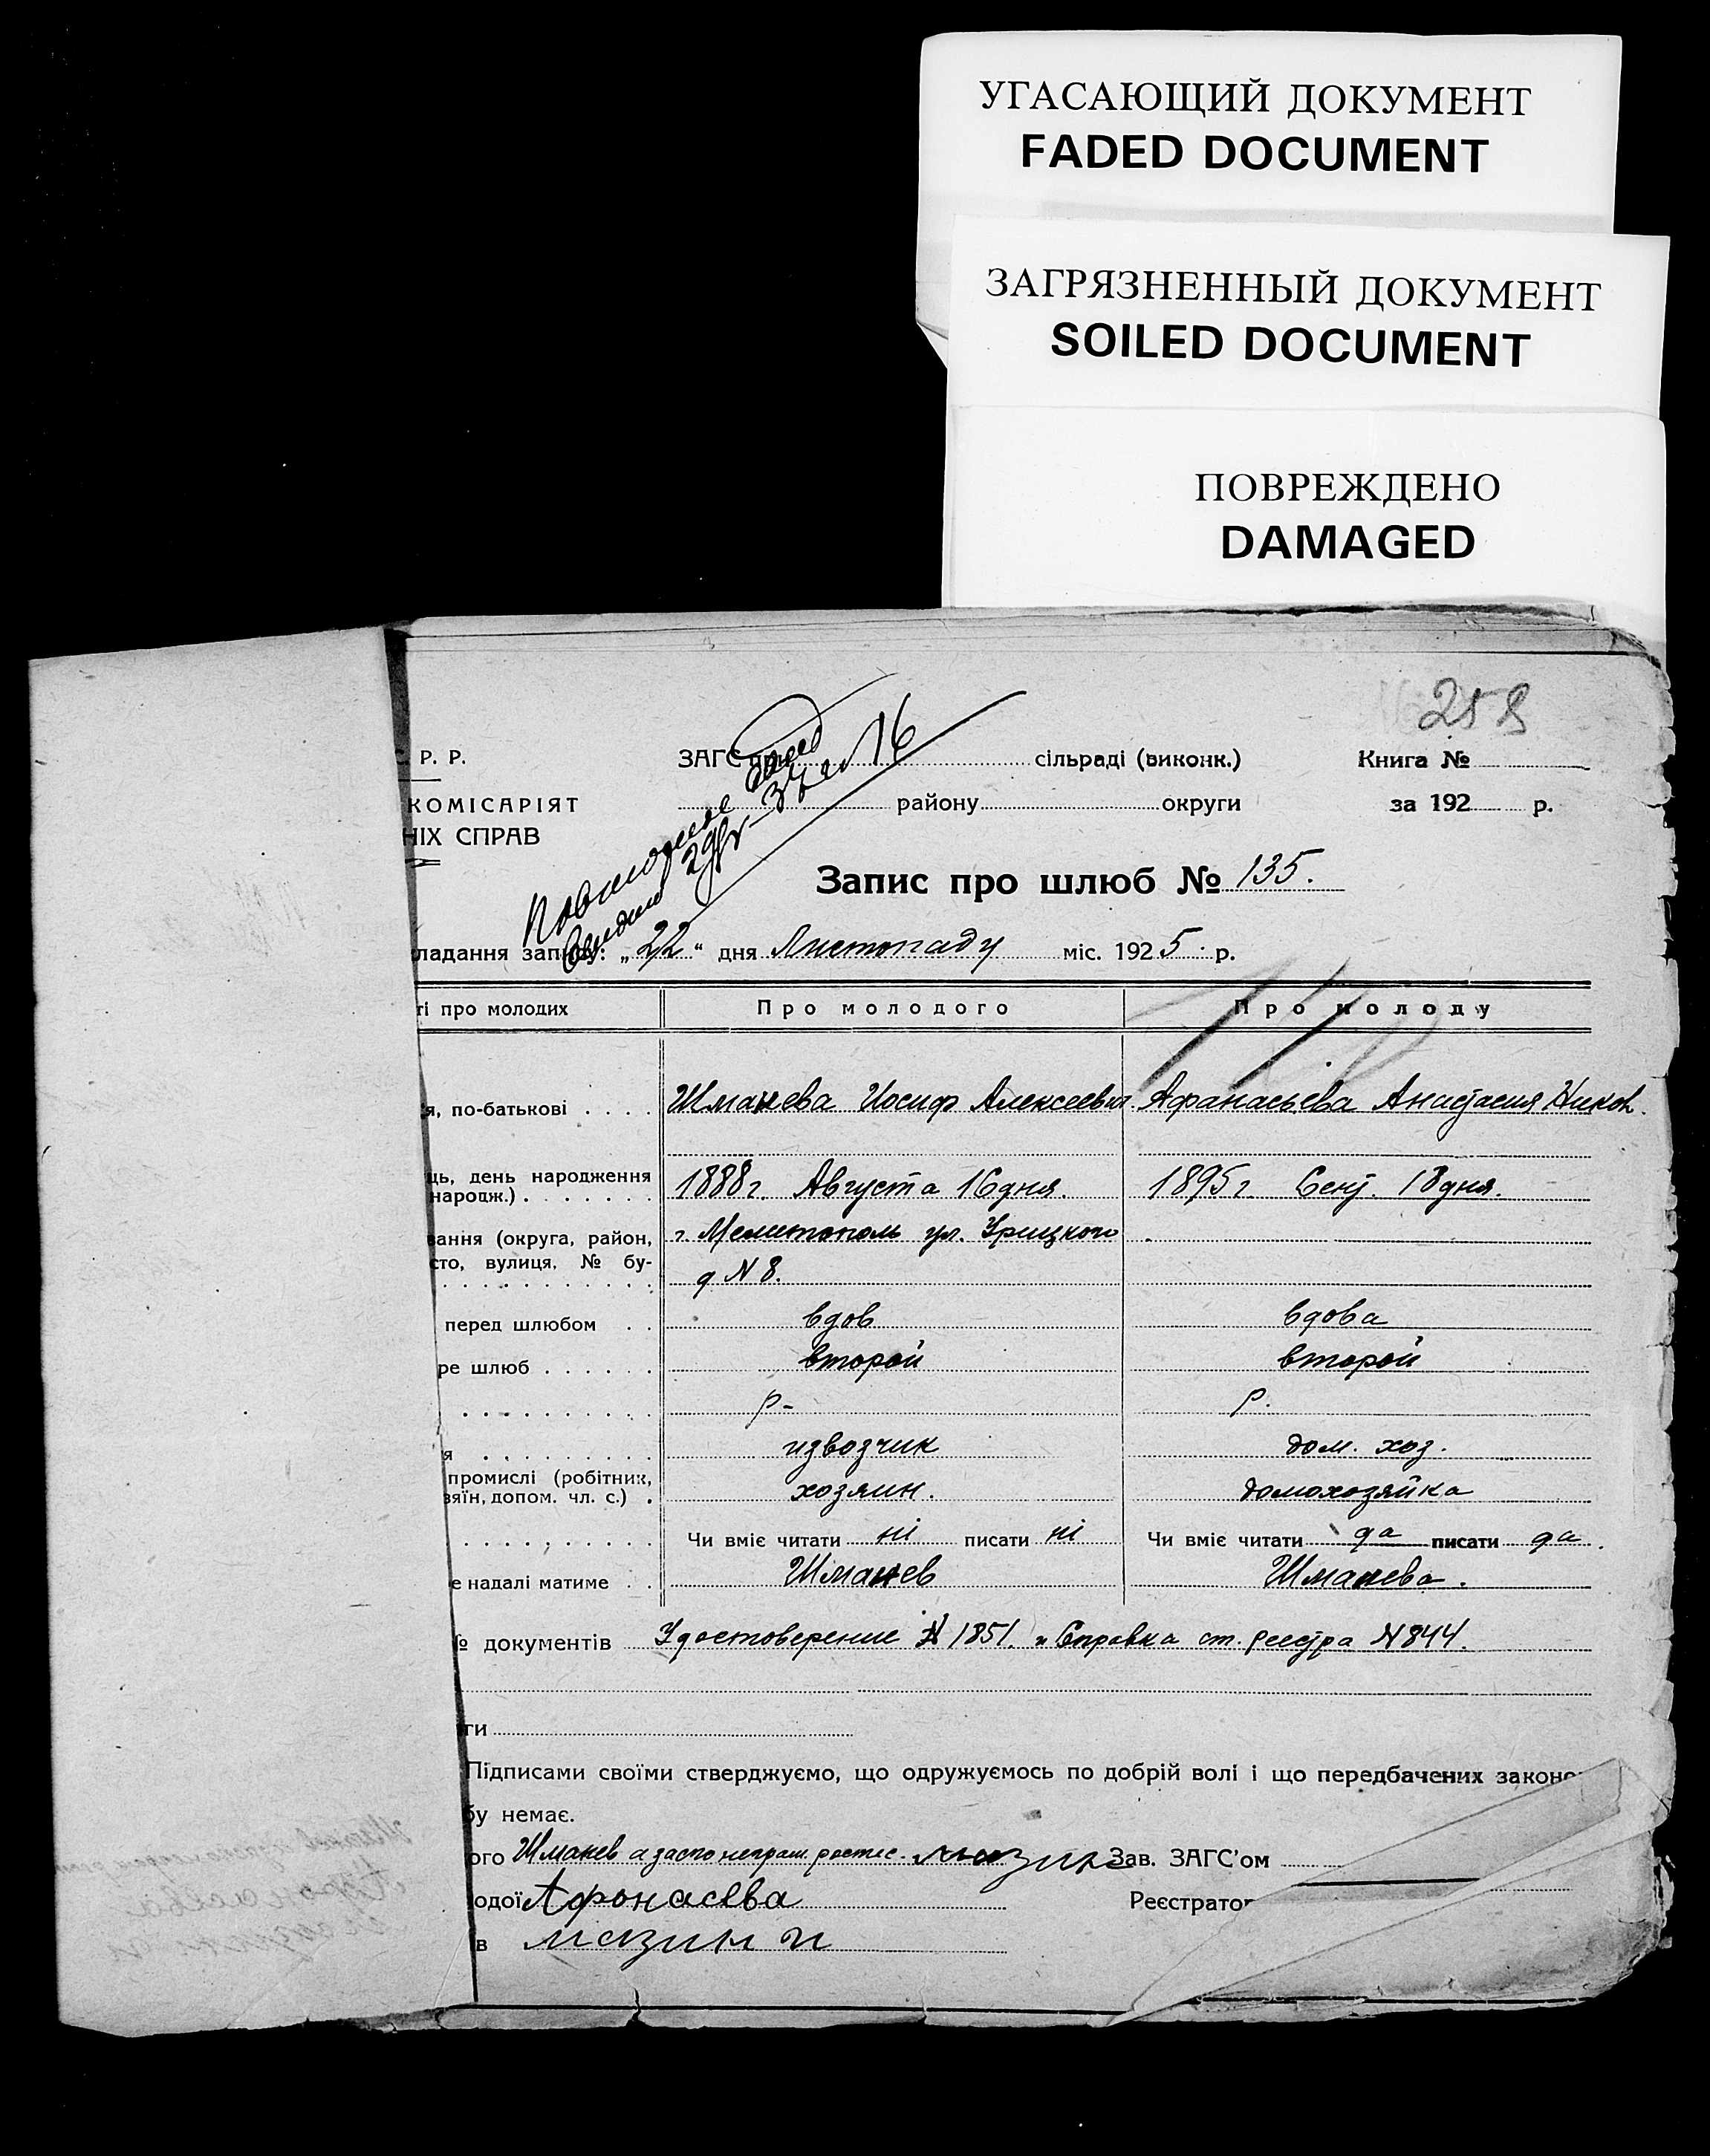 УГАСАЮЩИЙ ДОКУМЕНТ
FADED DOCUMENT
ЗАГРЯЗНЕННЫЙ ДОКУМЕНТ
SOILED DOCUMENT
ПОВРЕЖДЕНО
DAMAGED
Р. Р.
ЗАГС при сільраді (виконк.)
Книга №
КОМІСАРІЯТ
району округи
за 192 р.
НІХ СПРАВ
Повторное
16
Запис про шлюб № 135.
ладання запису: „22“ дня Листопаду міс. 1925 р.
ті про молодих
Про молодого
Про молоду
я, по-батькові
Шманева Иосиф Алексеевич
Афанасьева Анастасия Никол.
ць, день народження
народж.)
1888 г. Августа 16 дня.
1895 г. Сент. 18 дня.
вання (округа, район,
сто, вулиця, № бу-
г. Мелитополь ул. Урицкого
д N 8.
перед шлюбом
вдов
вдова
ре шлюб
второй
второй
р-
р.
я
извозчик
дом. хоз.
промислі (робітник,
зяїн, допом. чл. с.)
хозяин.
домохозяйка
Чи вміє читати ні писати ні
Чи вміє читати да писати да.
е надалі матиме
Шманев
Шманева.
№ документів Удостоверение N 1851. и Справка ст. реестра N 844.
ти
Підписами своїми стверджуємо, що одружуємось по добрій волі і що передбачених законо
бу немає.
ого Шманев а за его неграм. роспис.
Зав. ЗАГС'ом
одої Афонасева
Реєстратор
в Мазин и